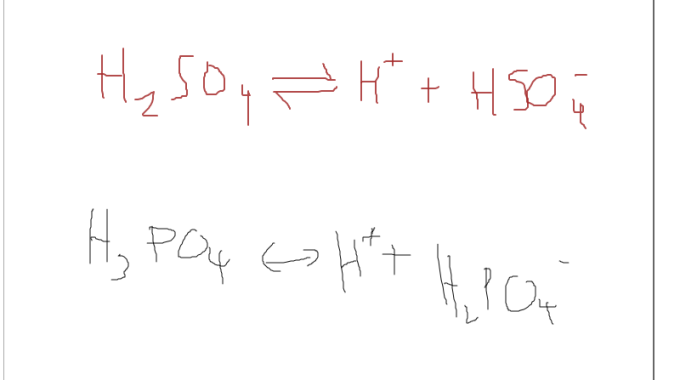 H₂SO₄ ⇌ H⁺ + HSO₄⁻
H₃PO₄ ↔ H⁺ + H₂PO₄⁻